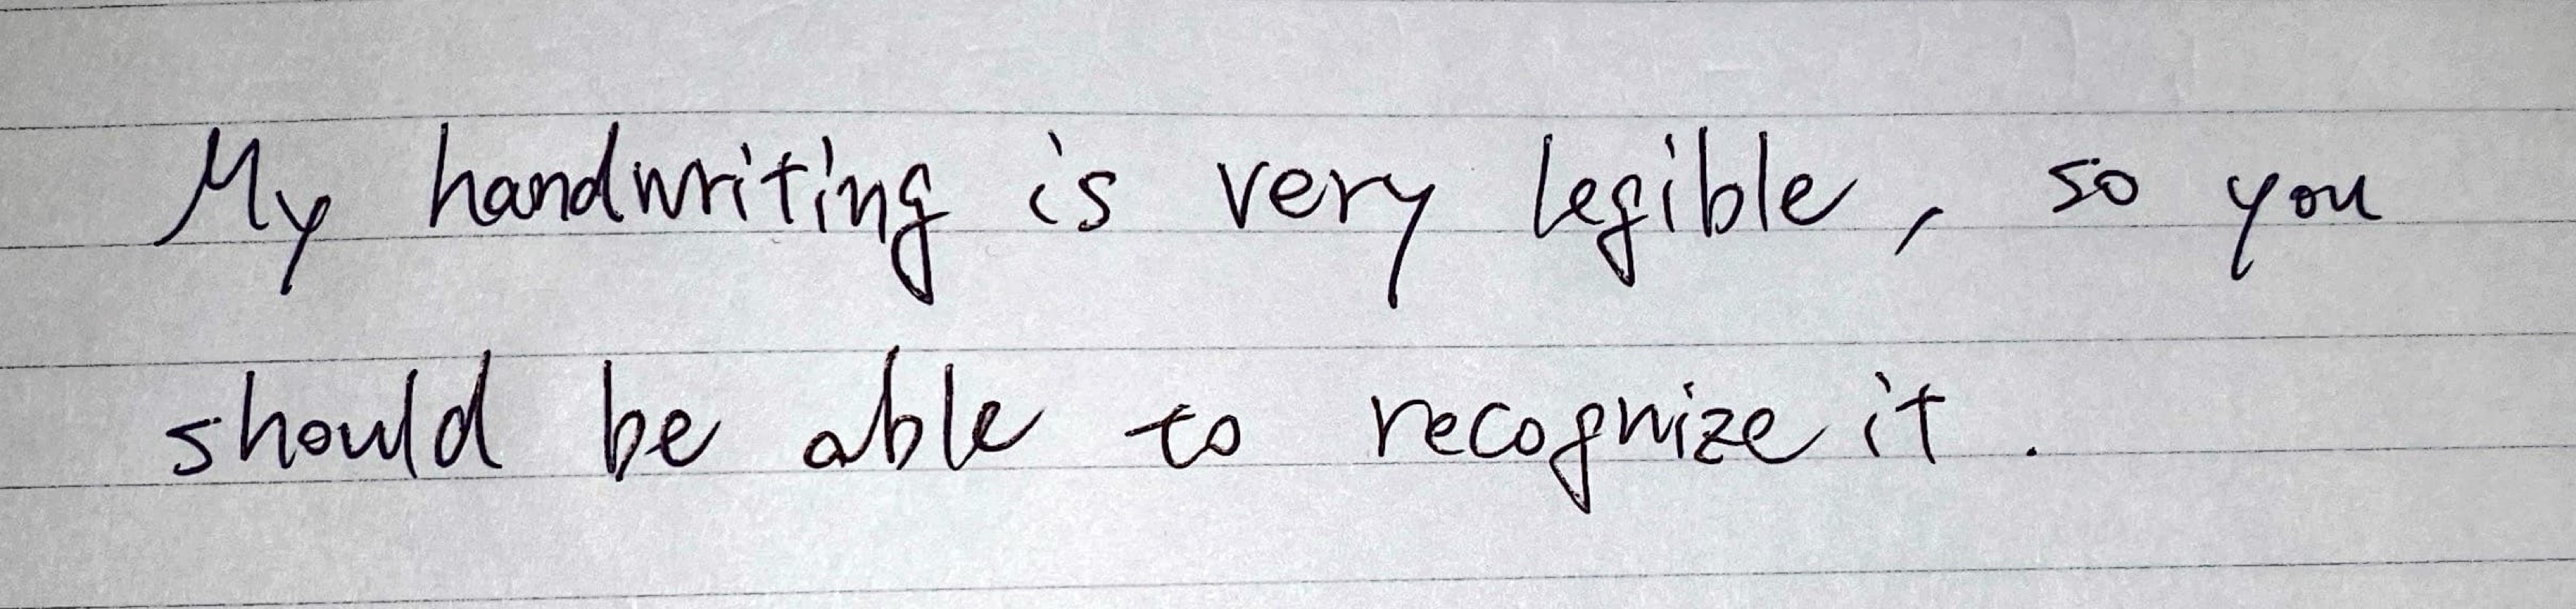 My handwriting is very legible, so you
should be able to recognize it.